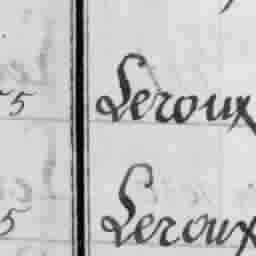 5 Leroux
5 Leroux